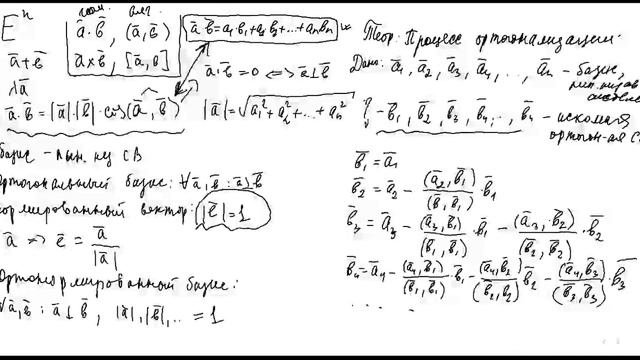 Eⁿ
геом. алг.
a̅·b̅, (a̅,b̅)
a̅·b̅=a₁b₁+a₂b₂+...+aₙbₙ
a̅+b̅
a̅×b̅, [a̅,b̅]
λa̅
a̅·b̅=0 ⟺ a̅⊥b̅
a̅·b̅=|a̅|·|b̅|·cos(a̅,b̅)
|a̅|=√a₁²+a₂²+...+aₙ²
базис - лин. нз СВ
ортогональный базис: ∀a̅,b̅: a̅⊥b̅
нормированный вектор: |e̅|=1
a̅ ⇝ e̅ = a̅/|a̅|
Ортонормированный базис:
∀a̅,b̅: a̅⊥b̅, |a̅|,|b̅|,.. = 1
Теор: Процесс ортогонализации.
Дано: a̅₁, a̅₂, a̅₃, a̅₄, .., a̅ₙ - базис,
лин.
? - b̅₁, b̅₂, b̅₃, b̅₄, .., b̅ₙ - искомая
ортогон-ая С
b̅₁ = a̅₁
b̅₂ = a̅₂ - (a̅₂,b̅₁)/(b̅₁,b̅₁) · b̅₁
b̅₃ = a̅₃ - (a̅₃,b̅₁)/(b̅₁,b̅₁) · b̅₁ - (a̅₃,b̅₂)/(b̅₂,b̅₂) · b̅₂
b̅₄ = a̅₄ - (a̅₄,b̅₁)/(b̅₁,b̅₁) · b̅₁ - (a̅₄,b̅₂)/(b̅₂,b̅₂) b̅₂ - (a̅₄,b̅₃)/(b̅₃,b̅₃) · b̅₃
. . . .